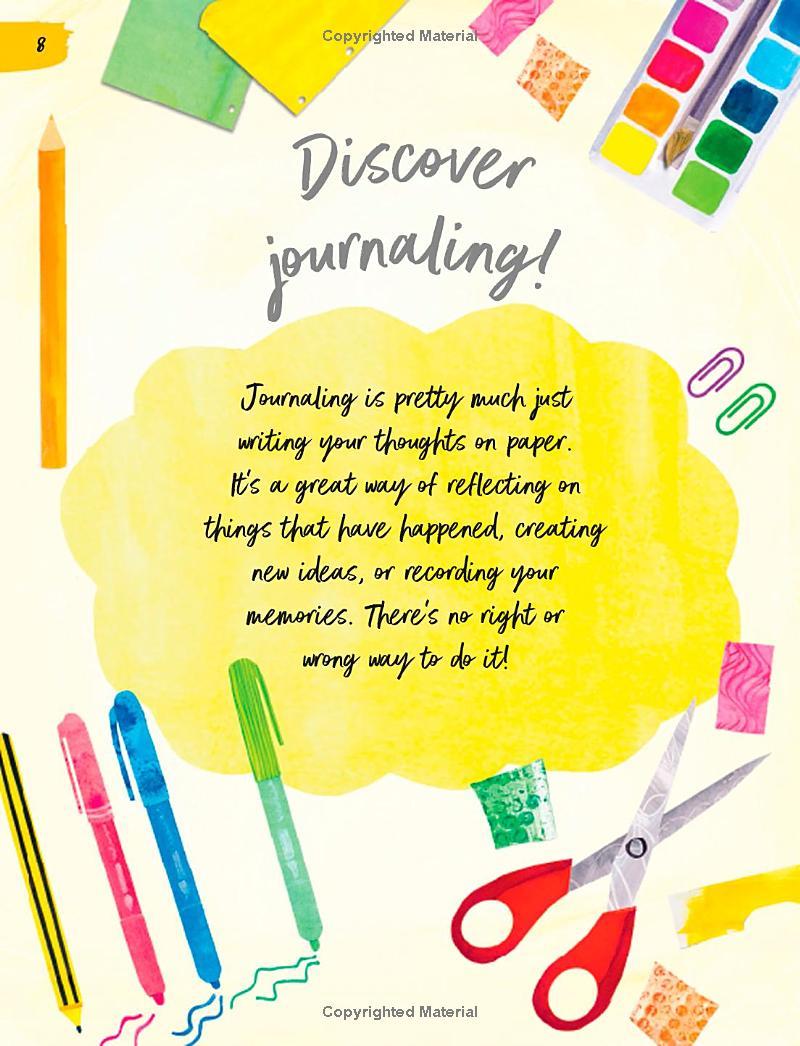 8
Copyrighted Material
Discover
journaling!
Journaling is pretty much just
writing your thoughts on paper.
It's a great way of reflecting on
things that have happened, creating
new ideas, or recording your
memories. There's no right or
wrong way to do it!
Copyrighted Material